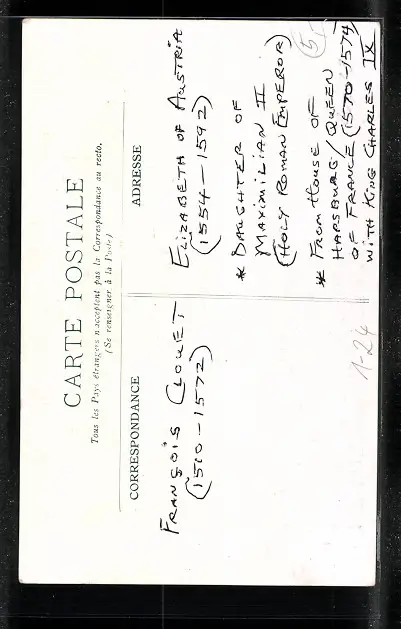 CARTE POSTALE
Tous les Pays étrangers n'acceptent pas la Correspondance au recto.
(Se renseigner à la Poste)
CORRESPONDANCE
ADRESSE
FRANÇOIS CLOUET
(1510-1572)
ELIZABETH OF AUSTRIA
(1554-1592)
* DAUGHTER OF
MAXIMILIAN II
(HOLY ROMAN EMPEROR)
(5)
* FROM HOUSE OF
HAPSBURG/QUEEN
OF FRANCE (1570-1574)
WITH KING CHARLES IX
1-24